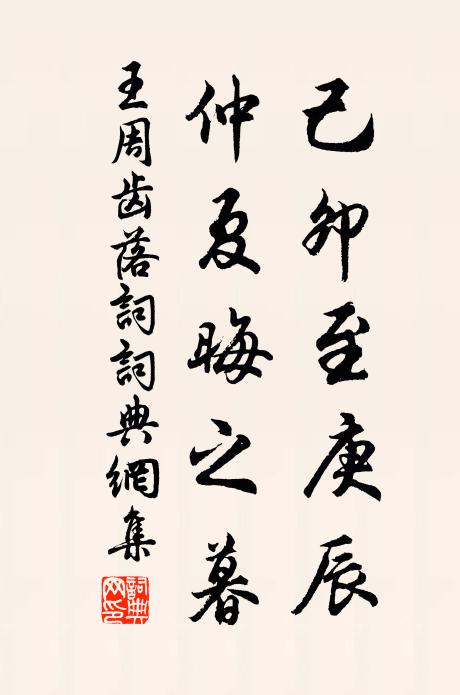 己卯至庚辰
仲夏晦之暮
王周齿落詞詞典網集
詞典网印